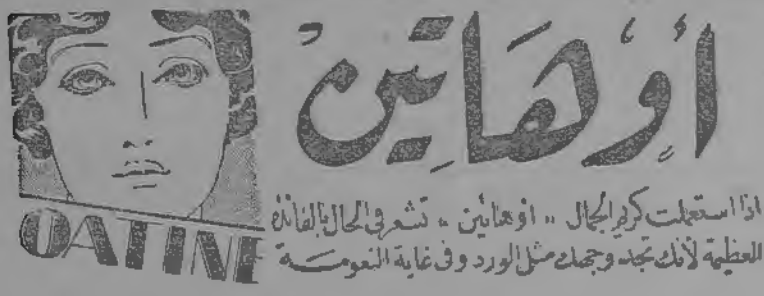 أوهاتين
OATINE
اذا استعملت كريم الجمال „ اوهاتين „ تشعر فى الحال بالفائدة
العظيمة لأنك تجد وجهك مثل الورد وفى غاية النعومة